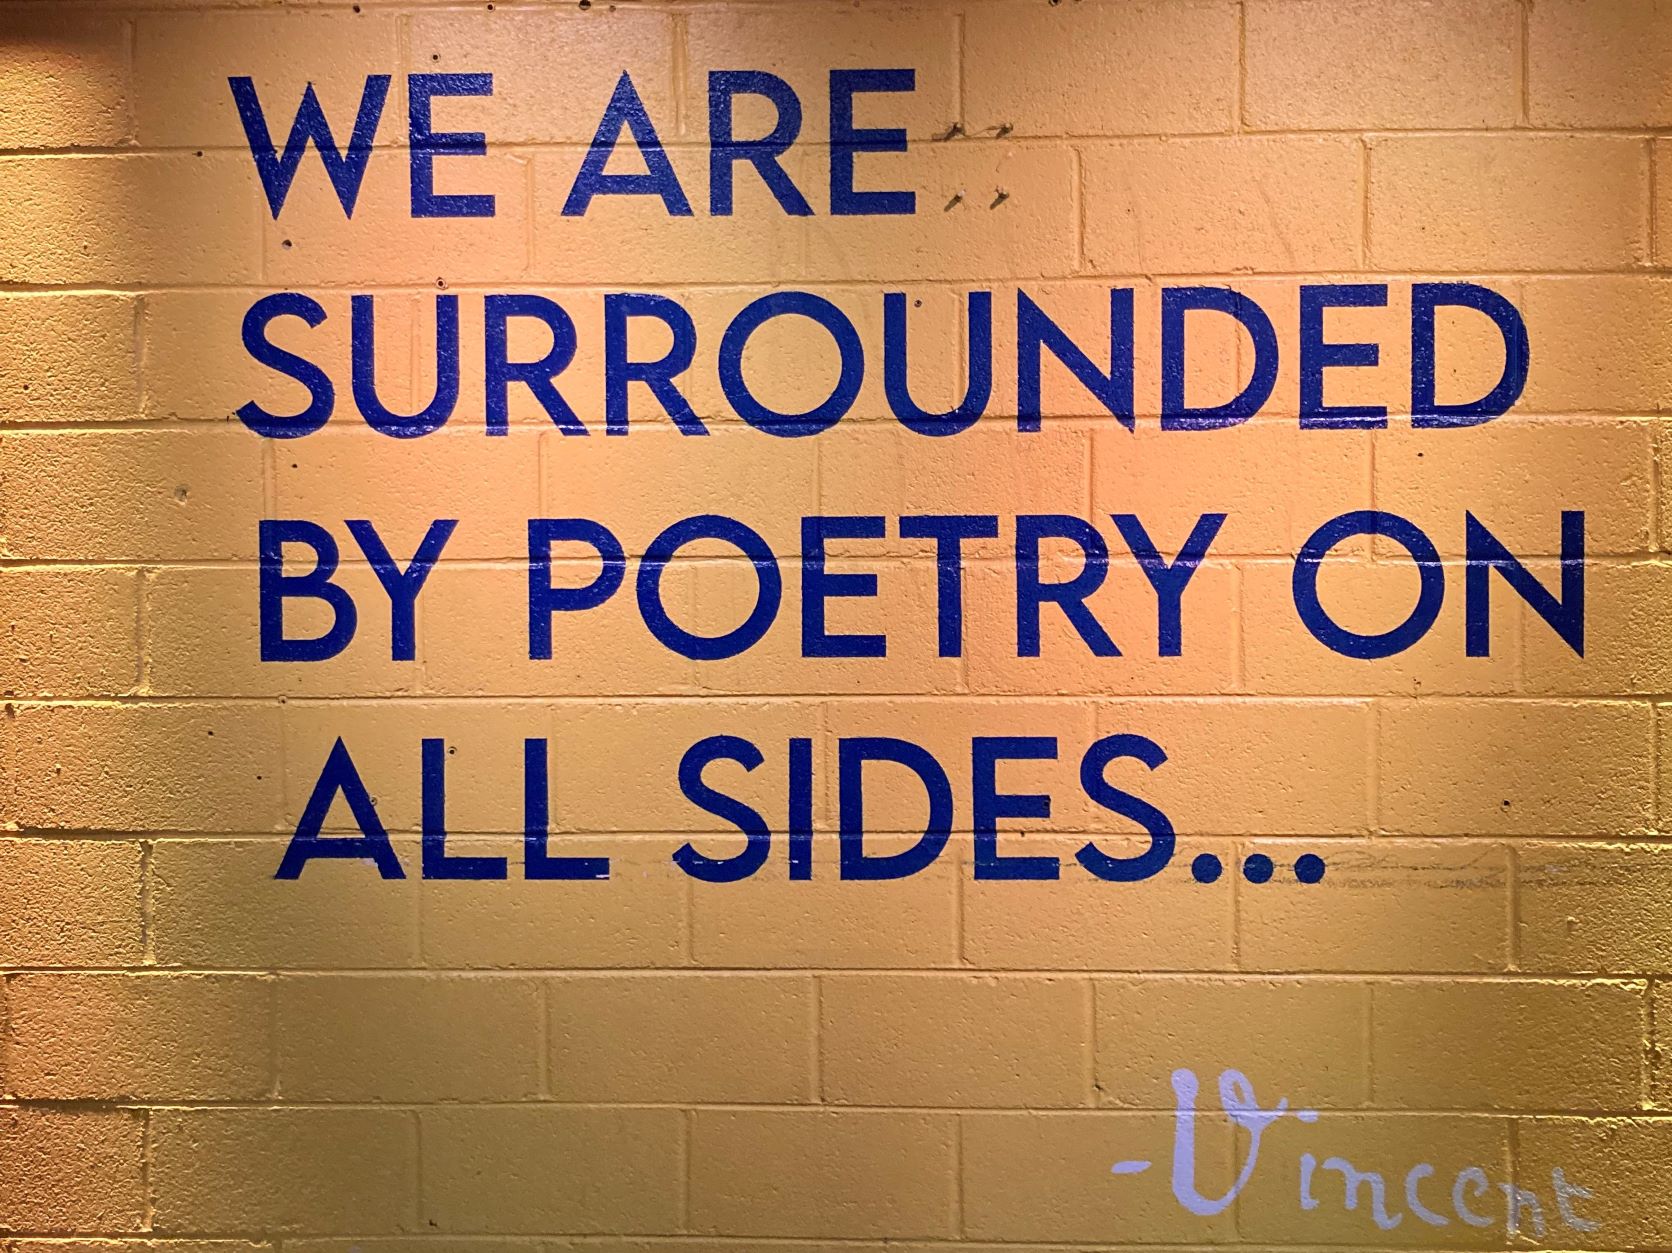 WE ARE
SURROUNDED
BY POETRY ON
ALL SIDES...
-Vincent